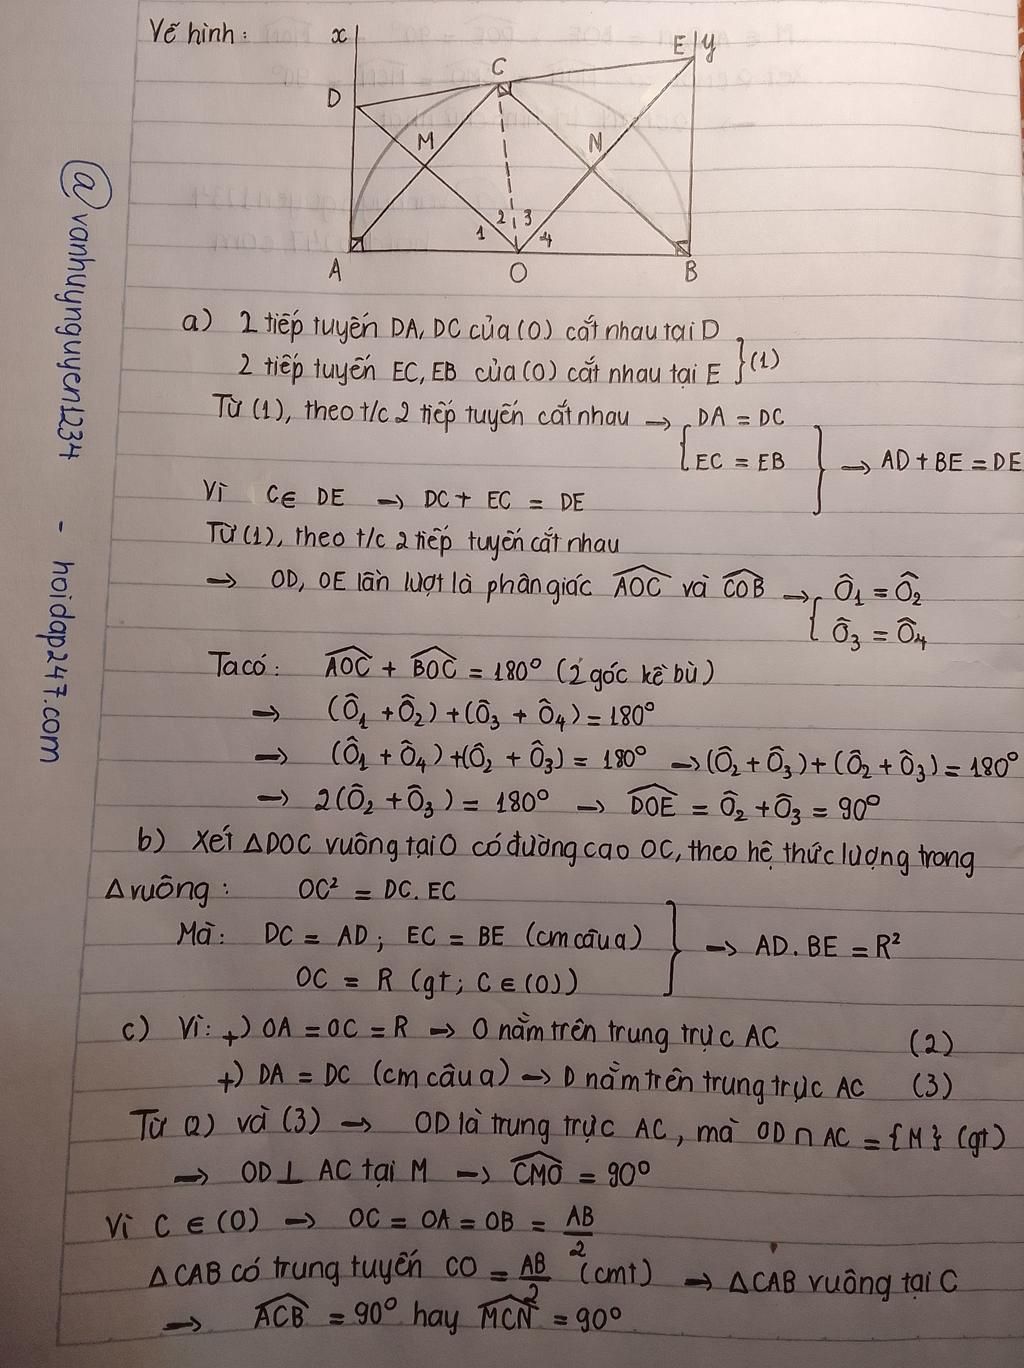 Vẽ hình:
x
E y
C
D
M
N
2 3
1 4
A
O
B
a) 2 tiếp tuyến DA, DC của (O) cắt nhau tại D
2 tiếp tuyến EC, EB của (O) cắt nhau tại E } (1)
Từ (1), theo t/c 2 tiếp tuyến cắt nhau → { DA = DC
EC = EB } → AD + BE = DE
Vì C ∈ DE → DC + EC = DE
Từ (1), theo t/c 2 tiếp tuyến cắt nhau
→ OD, OE lần lượt là phân giác \widehat{AOC} và \widehat{COB} → { Ô₁ = Ô₂
Ô₃ = Ô₄
Ta có: \widehat{AOC} + \widehat{BOC} = 180° (2 góc kề bù)
→ (Ô₁ + Ô₂) + (Ô₃ + Ô₄) = 180°
→ (Ô₁ + Ô₄) + (Ô₂ + Ô₃) = 180° → (Ô₂ + Ô₃) + (Ô₂ + Ô₃) = 180°
→ 2(Ô₂ + Ô₃) = 180° → \widehat{DOE} = Ô₂ + Ô₃ = 90°
b) Xét ΔDOC vuông tại O có đường cao OC, theo hệ thức lượng trong
Δ vuông: OC² = DC. EC
Mà: DC = AD; EC = BE (cm câu a) } → AD. BE = R²
OC = R (gt; C ∈ (O))
c) Vì: +) OA = OC = R → O nằm trên trung trực AC (2)
+) DA = DC (cm câu a) → D nằm trên trung trực AC (3)
Từ (2) và (3) → OD là trung trực AC, mà OD ∩ AC = {M} (gt)
→ OD ⊥ AC tại M → \widehat{CMO} = 90°
Vì C ∈ (O) → OC = OA = OB = AB/2
ΔCAB có trung tuyến CO = AB/2 (cmt) → ΔCAB vuông tại C
→ \widehat{ACB} = 90° hay \widehat{MCN} = 90°
@vanhuynguyen1234 - hoidap247.com